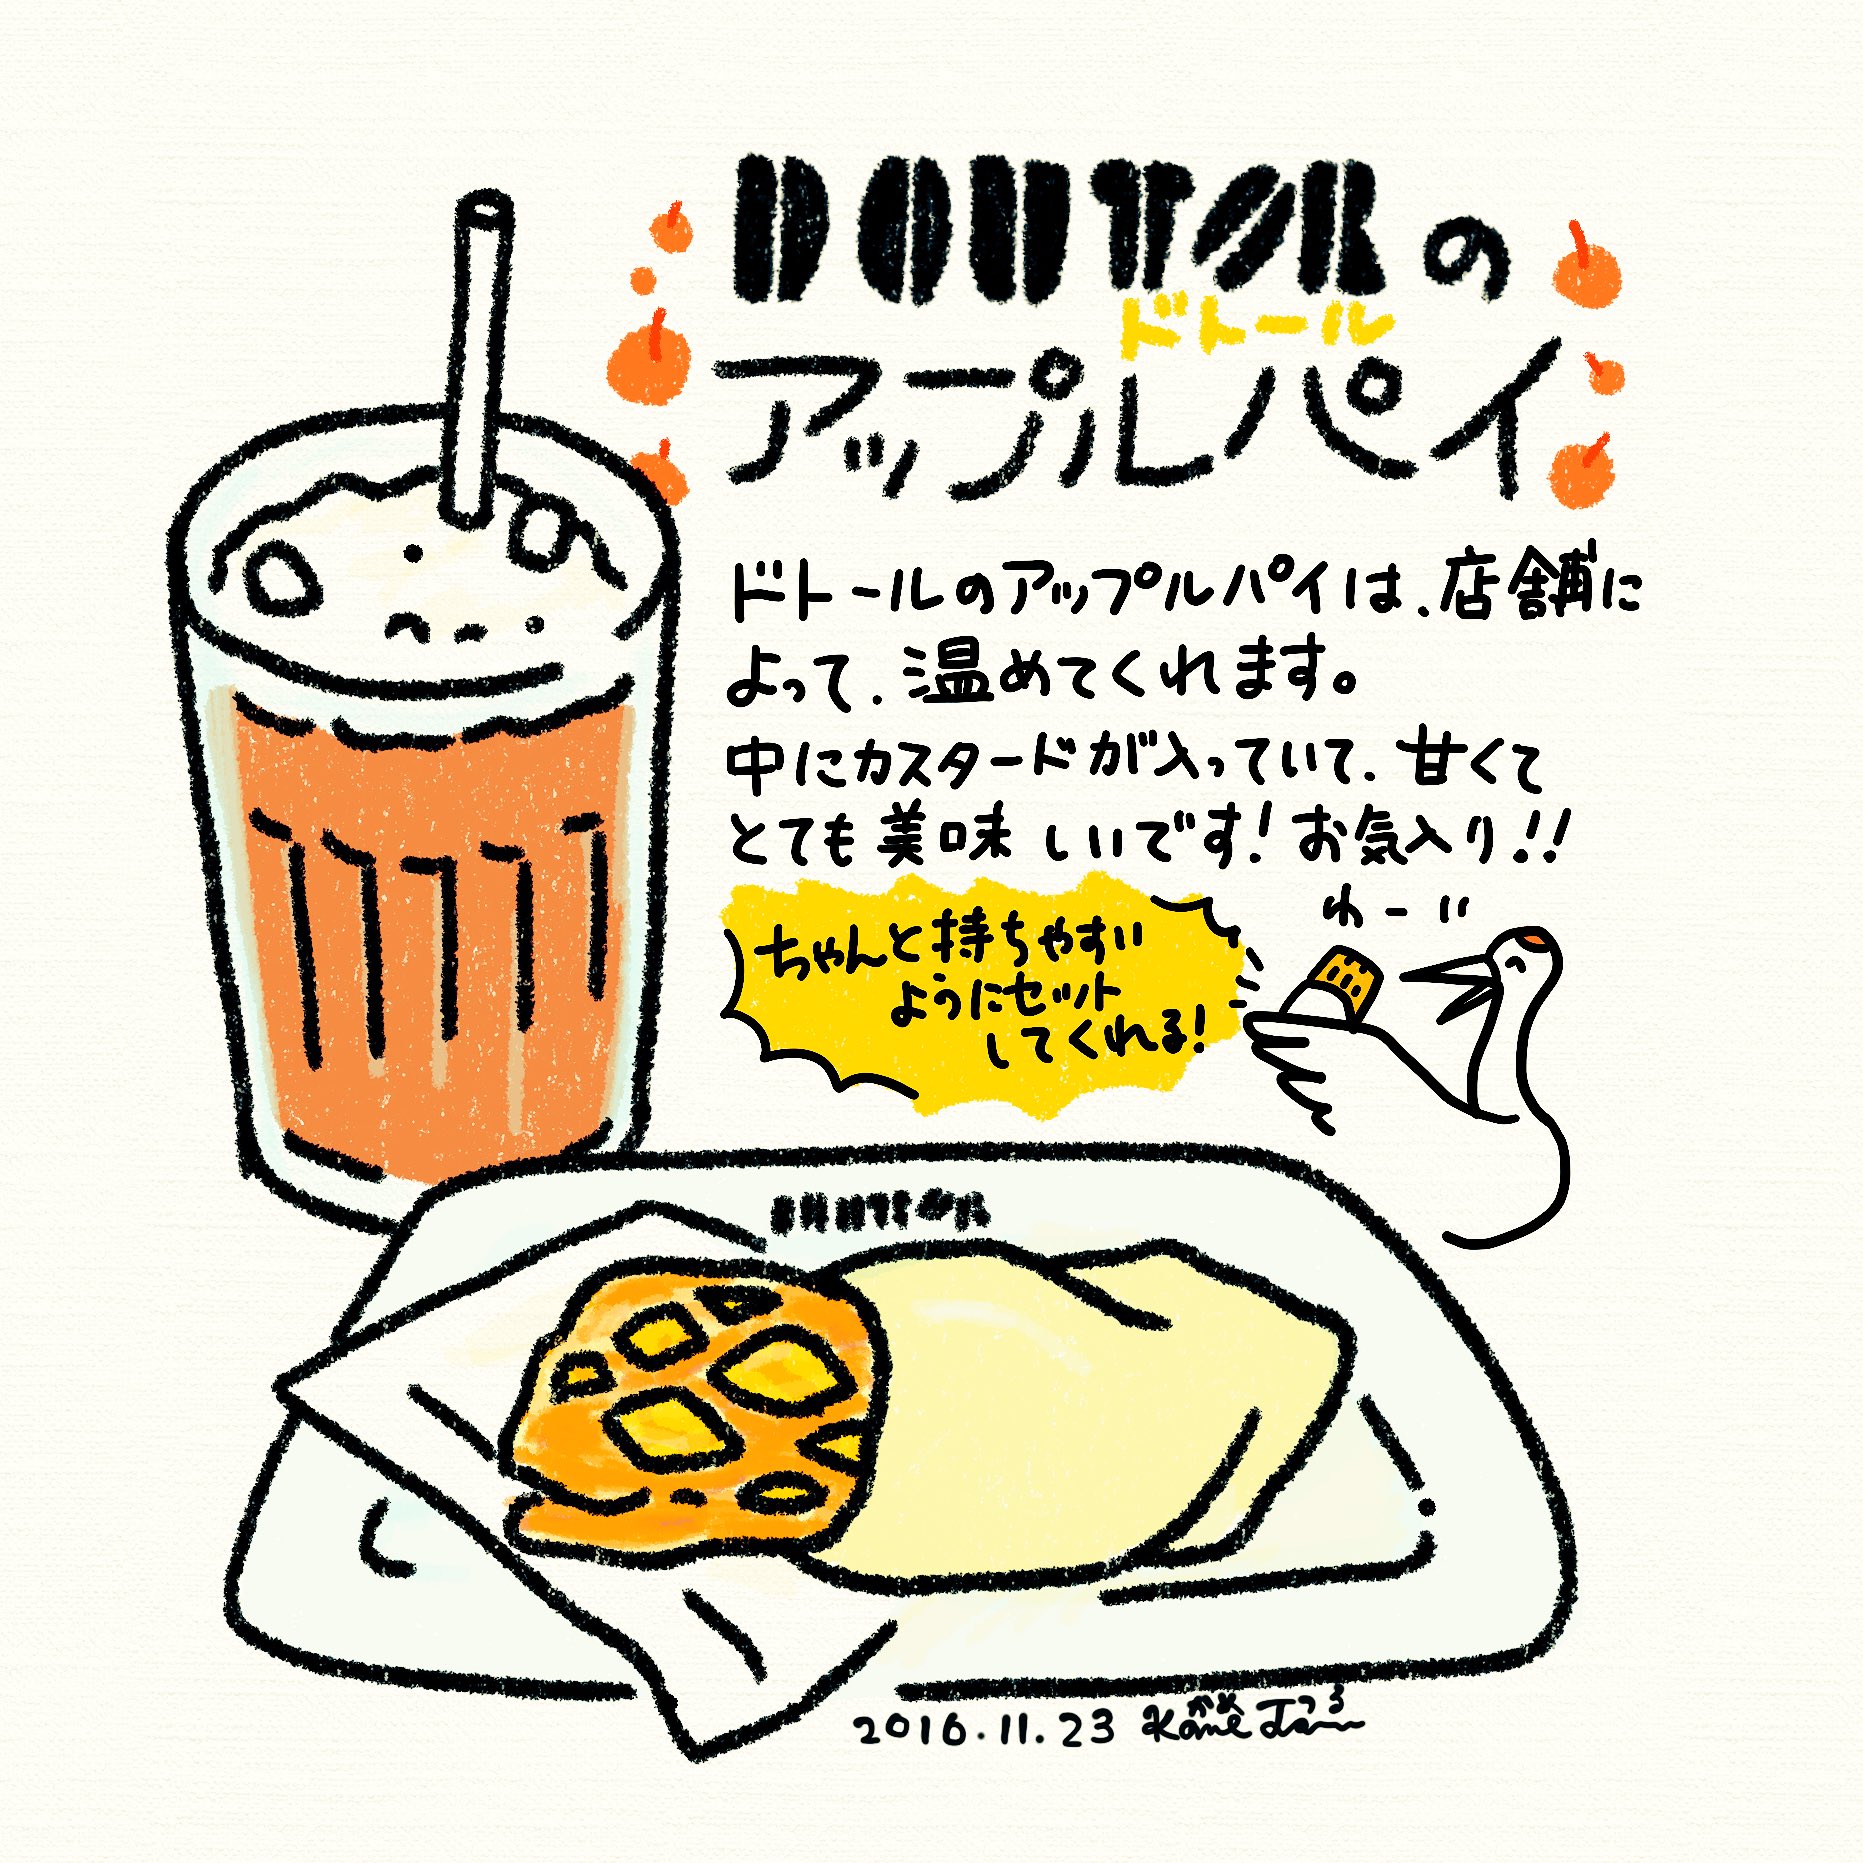 DOUTORの
ドトール
アップルパイ
ドトールのアップルパイは、店舗に
よって、温めてくれます。
中にカスタードが入っていて、甘くて
とても美味しいです！お気入り！！
わーい
ちゃんと持ちやすい
ようにセット
してくれる！
DOUTOR
2016.11.23